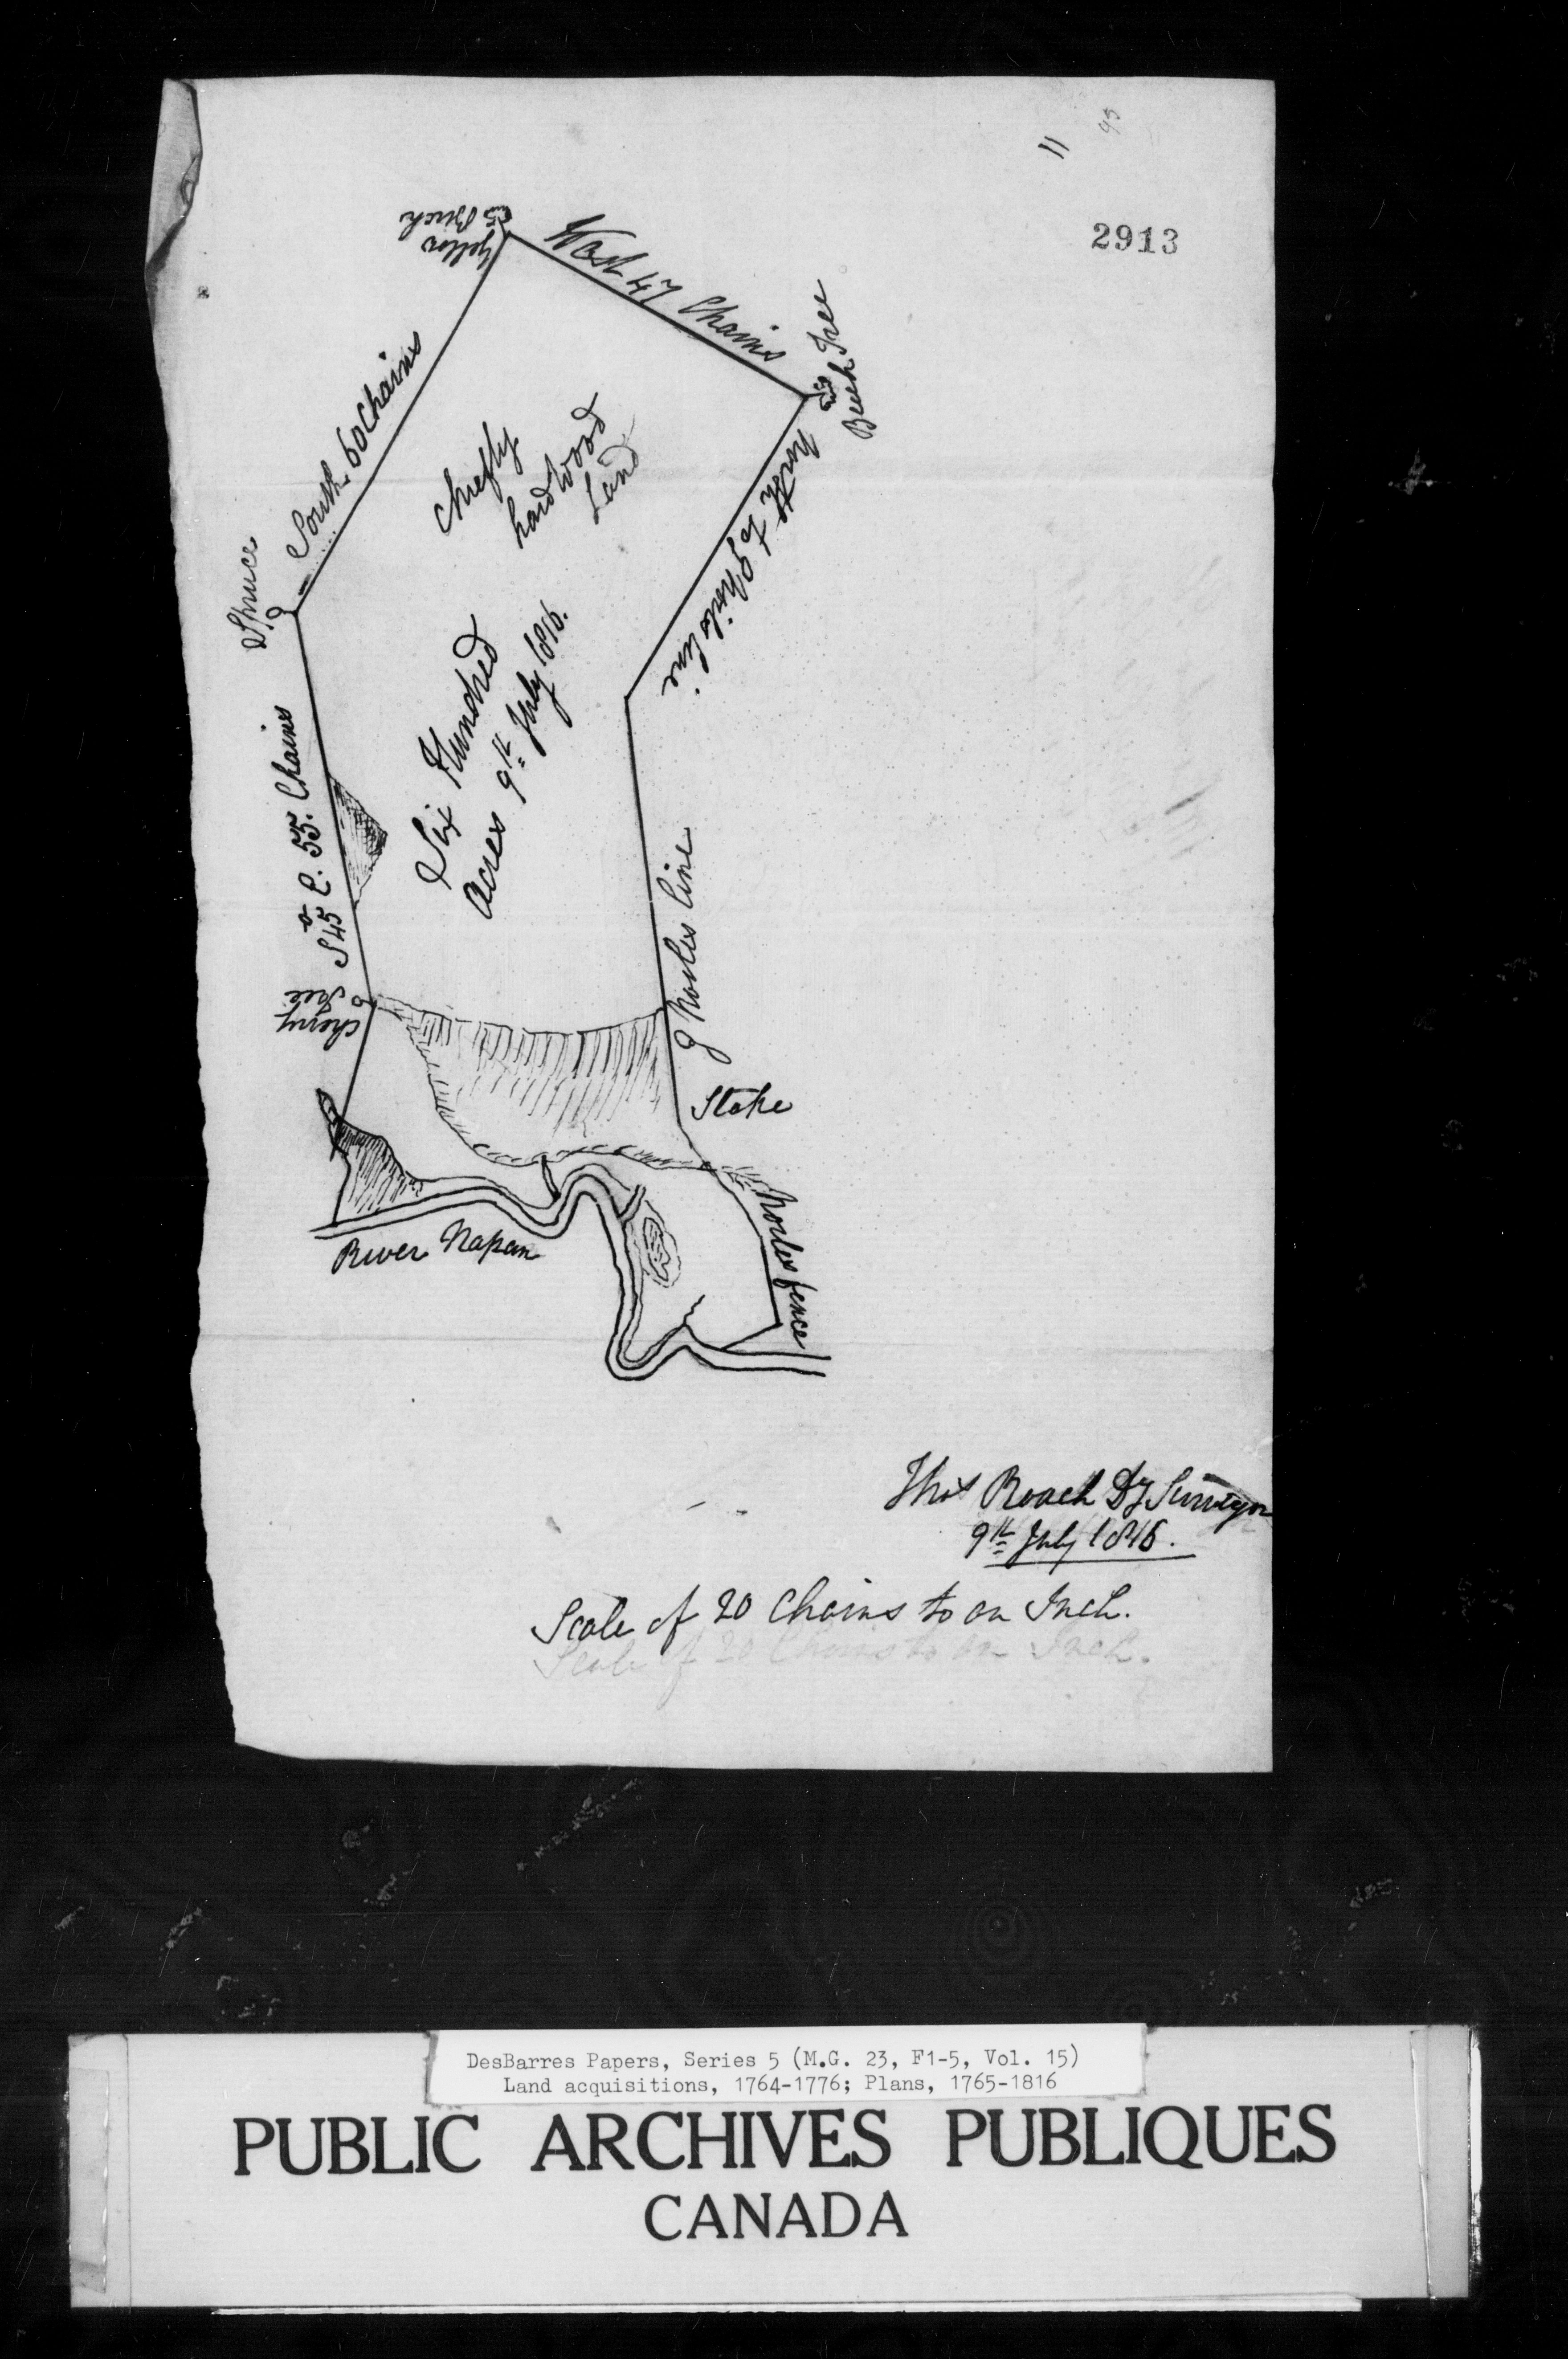 11
95
2913
Yellow
Birch
West 47 Chains
Beech Tree
South 60 Chains
Spruce
chiefly
hard Wood
Land
north to
line
Six Hundred
Acres 9th July 1816.
S 45° E. 55. Chains
Cherry
Tree
line
Stake
fence
River Napan
Thos Roach Dy Surveyor
9th July 1816.
Scale of 20 Chains to an Inch.
Scale of 20 Chains to an Inch.
DesBarres Papers, Series 5 (M.G. 23, F1-5, Vol. 15)
Land acquisitions, 1764-1776; Plans, 1765-1816
PUBLIC ARCHIVES PUBLIQUES
CANADA